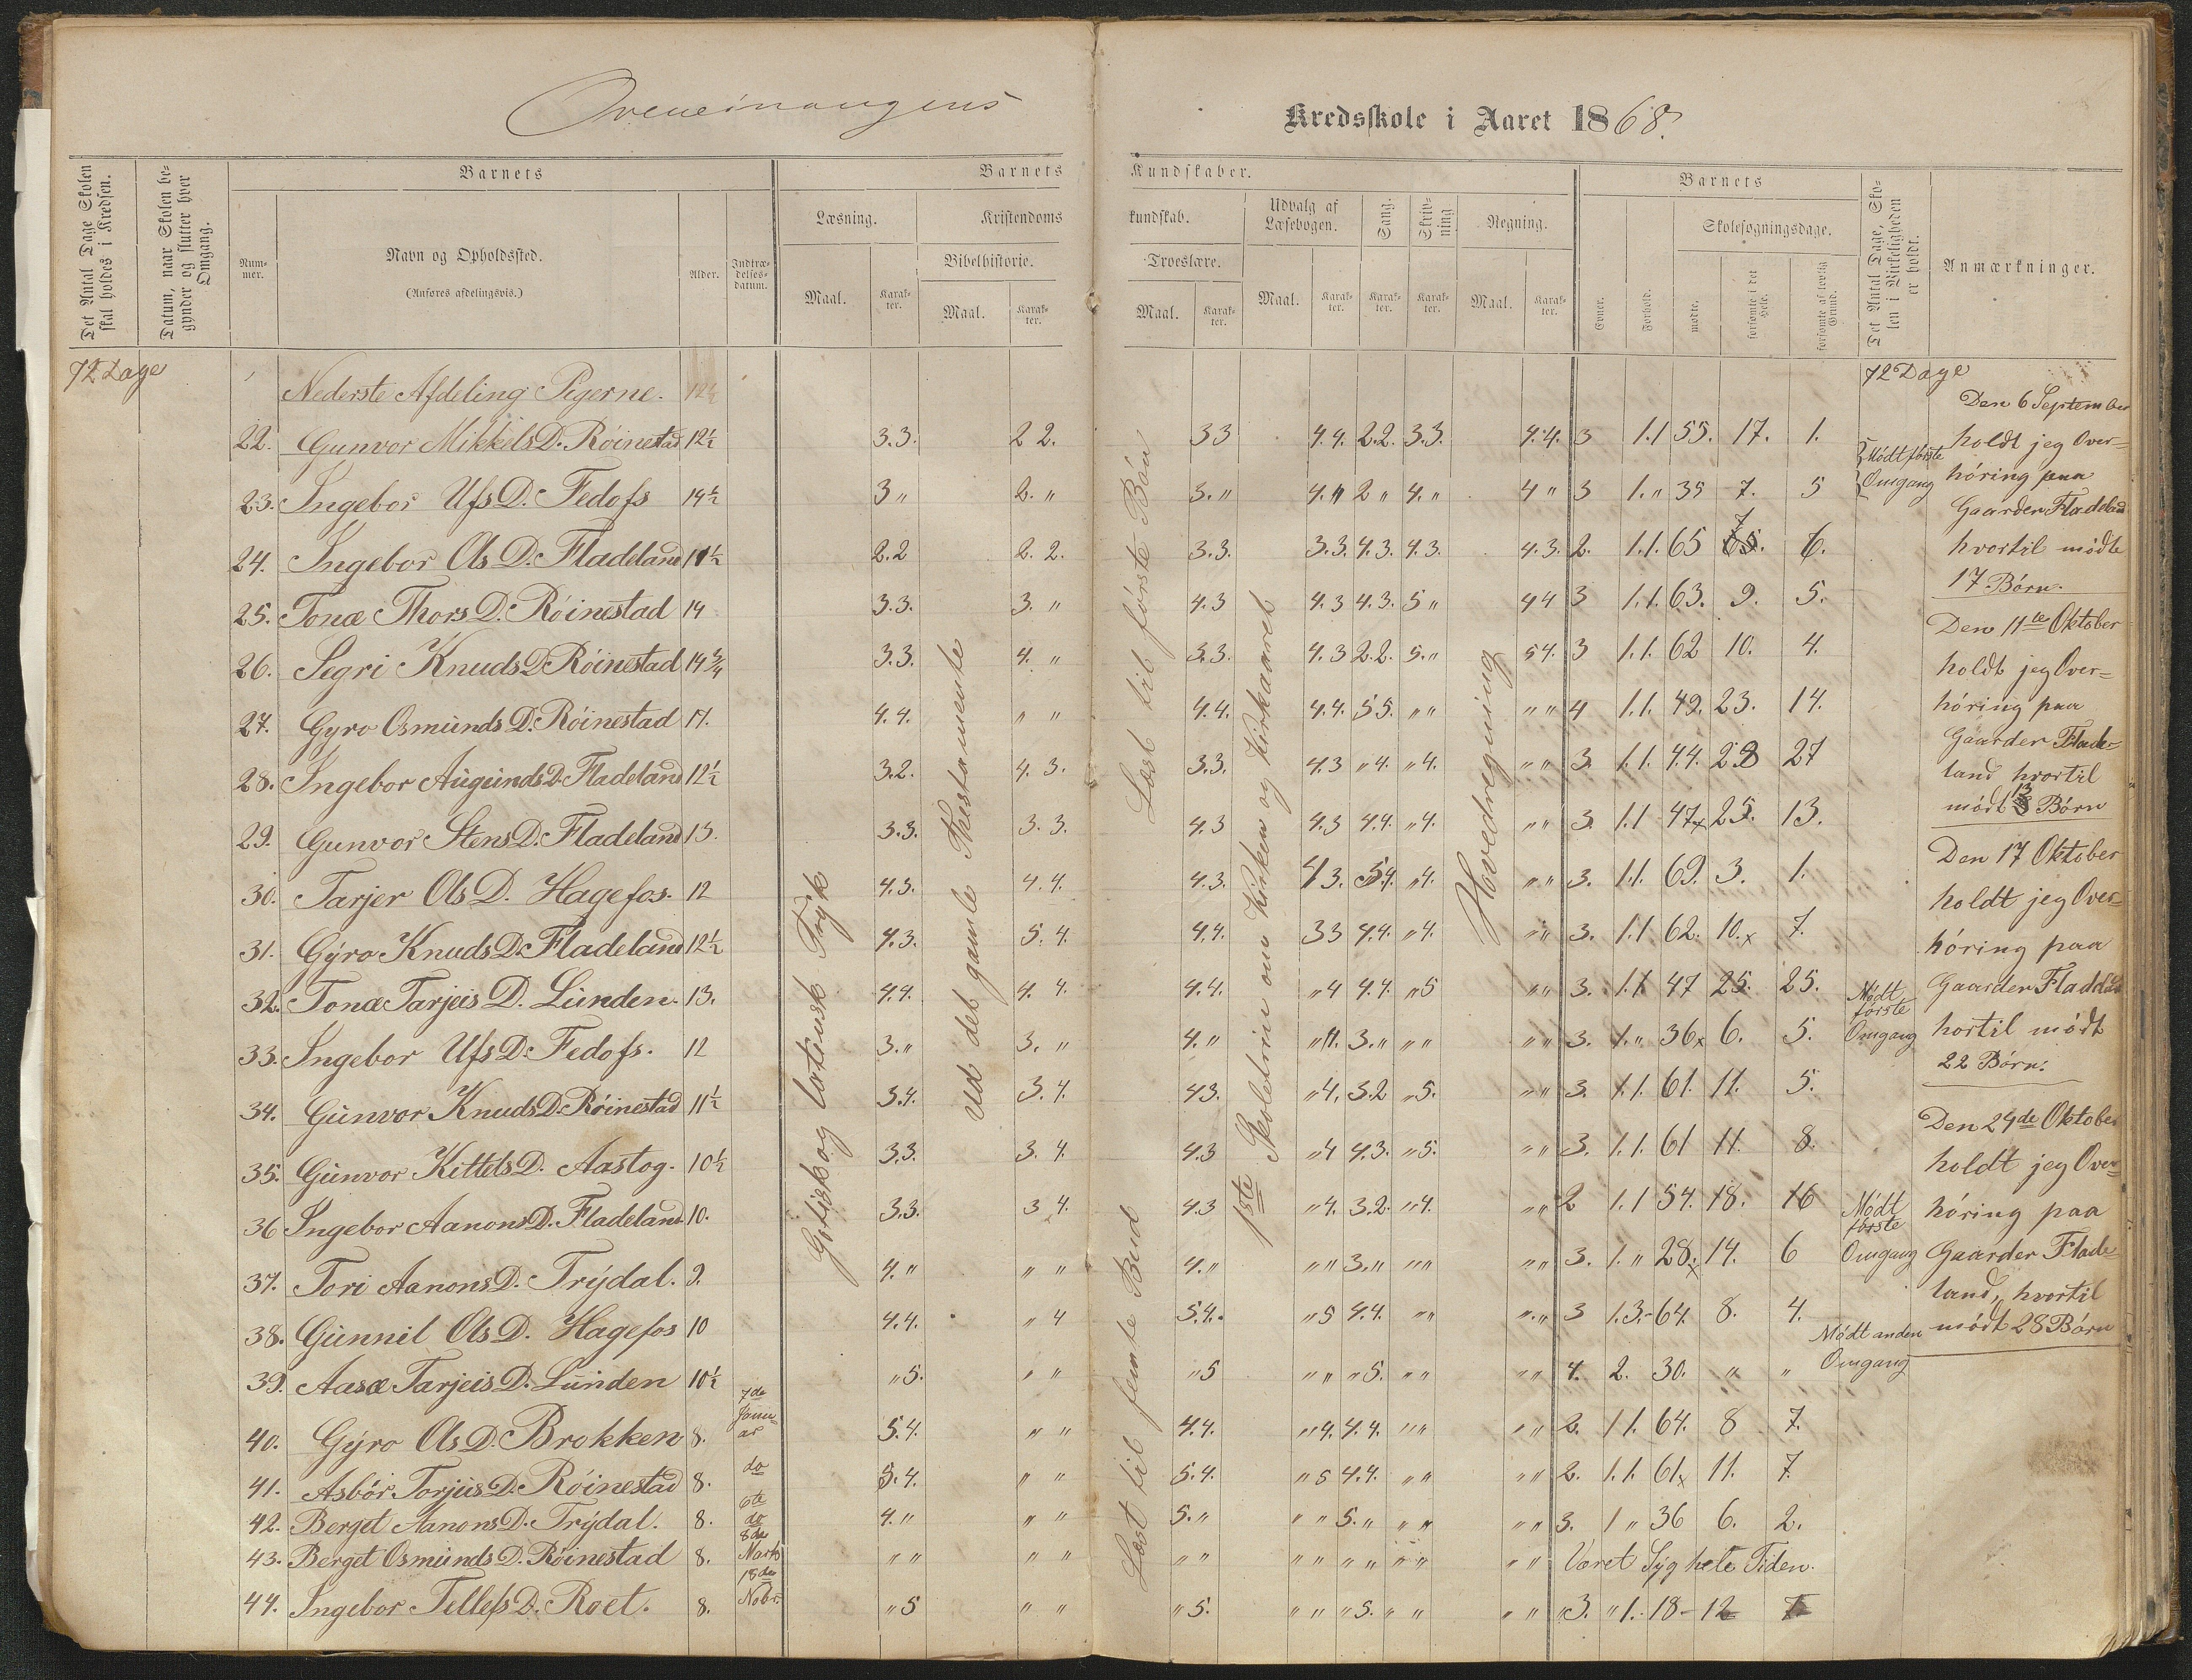 Kredsskole i Aaret 1868.
Det Antal Dage Skolen skal holdes i Kredsen.
Datum, naar Skolen begynder og slutter hver Omgang.
Barnets
Nummer.
Navn og Opholdssted.
(Anføres afdelingsvis.)
Alder.
Indtrædelsesdatum.
Barnets Kundskaber.
Læsning.
Maal.
Karakter.
Kristendomskundskab.
Bibelhistorie.
Maal.
Karakter.
Troeslære.
Maal.
Karakter.
Udvalg af Læsebogen.
Maal.
Karakter.
Sang.
Karakter.
Skrivning
Karakter.
Regning.
Maal.
Karakter.
Barnets
Evner.
Forhold.
Skolesøgningsdage.
mødte.
forsømte i det Hele.
forsømte af lovlig Grund.
Det Antal Dage, Skolen i Virkeligheden er holdt.
Anmærkninger.
72 Dage
Nederste Afdeling Pigerne.
72 Dage
22. Gunvor Mikkels D. Röinestad 12½ 3.3. 2 2. 33 4.4. 2.2. 3.3. 4.4. 3 1.1 55. 17. 1.
23. Ingebor Ufs D. Fedofs 14½ 3 " 2. " 3. " 4. " 2 " 4. " 4 " 3 1. " 35 7. 5 Mödt første Omgang
24. Ingebor Ols D. Fladeland 11½ 2.2 2. 2. 3.3. 3.3. 4.3. 4.3. 4.3. 2. 1.1. 65 7 6.
25. Tonæ Thors D. Röinestad 14 3.3. 3. " 4.3 4.3 4.3. 5 " 44 3 1.1. 63. 9. 5.
26. Segri Knuds D. Röinestad 14¾ 3.3. 4. " 3.3. 4.3 2.2. 5. " 54. 3 1.1. 62 10. 4.
27. Gyro Osmunds D. Röinestad 11. 4.4. " " 4.4. 4.4. 55. " " " " 4 1.1. 49. 23. 14.
28. Ingebor Augunds D. Fladeland 12½ 3.2. 4. 3. 3.3. 4.3 " 4. " 4. " " 3. 1.1. 44. 28 27
29. Gunvor Stens D. Fladeland 13. 3.3. 3. 3. 4.3 4.3 4.4. " 4. " " 3. 1.1 47x 25. 13.
30. Tarjer Ols D. Hagefos. 12 4.3. 4.4. 4.3. 43. 5.4. " 4. " " 3. 1.1. 69. 3. 1.
31. Gyro Knuds D. Fladeland 12½ 4.3. 5. 4. 4.4. 33 4.4. " 4. " " 3. 1.1 62. 10.x 7.
32. Tonæ Tarjeis D. Lunden. 13. 4.4. 4. 4. 4.4. " 4 4.4. " 5 " " 3. 1.1 47 25. 25.
33. Ingebor Ufs D. Fedofs. 12 3. " 3. " 4. " " 4. 3. " " " " " 3. 1. " 36x 6. 5. Mödt første Omgang
34. Gunvor Knuds D. Röinestad 11½ 3.4. 3. 4. 43. " 4. 3.2 " 5. " " 3. 1.1. 61. 11. 5.
35. Gunvor Kittels D. Aastog. 10½ 3.3. 3. 4. 4.3 " 4 4.3. " 5. " " 3. 1.1. 61 11. 8.
36 Ingebor Aanons D. Fladeland 10. 3.3. 3 4. 4.3 " 4. 3.2. " 4. " " 2 1.1 54. 18. 16
37. Tori Aanons D. Trydal. 9. 4. " " " 4. " " " 3. " " " " " 3. 1. " 28.x 14. 6 Mödt første Omgang
38. Gunnil Ols D. Hagefos 10 4.4. " 4 5.4. " 5 4.4. " " " " 3 1.3. 64. 8. 4.
39. Aasæ Tarjeis D. Lunden 10½ " 5. " " " 5 " " " 5. " " " " 4. 2. 30. " " Mödt anden Omgang
40. Gyro Ols D. Brokken 8. 7de Januar 5.4. " " 4.4. " 4. 4.4. " " " " 2. 1 1. 64. 8 7.
41. Asbör Torjus D. Röinestad 8. do 5.4. " " 5.4. " 5 4.4. " " " " 2. 1.1. 61x 11. 7.
42. Berget Aanons D. Trydal. 8. 6te do 4. " " " 5. " " " 5. " " " " " 3. 1 " 36 6. 2.
43. Berget Osmunds D. Röinestad 8. 8de Marts " " " " " " " " " " " " " " Været Syg hele Tiden.
44. Ingebor Tellefs D. Roet. 8. 18de Nobr. " 5 " " " 5. " " " 5. " " " " " 3. " 1. 18 - 12
Gotisk og latinsk Tryk
Ud det gamle Thestamente
Læst til første Bön
Læst til femte Bud
1ste Skoletrin om Kirken og Kirkeaaret
Hovedregning
Den 6 September
holdt jeg Over=
höring paa
Gaarden Fladeland
hvortil mödte
17 Börn.
Den 11te Oktober
holdt jeg Over=
höring paa
Gaarden Flade=
land hvortil
mödt 13 Börn
Den 17 Oktober
holdt jeg Over=
höring paa
Gaarden Fladeland
hortil mödt
22 Börn.
Den 24de Oktober
holdt jeg Over=
höring paa
Gaarder Flade
land, hvortil
mödt 28 Börn